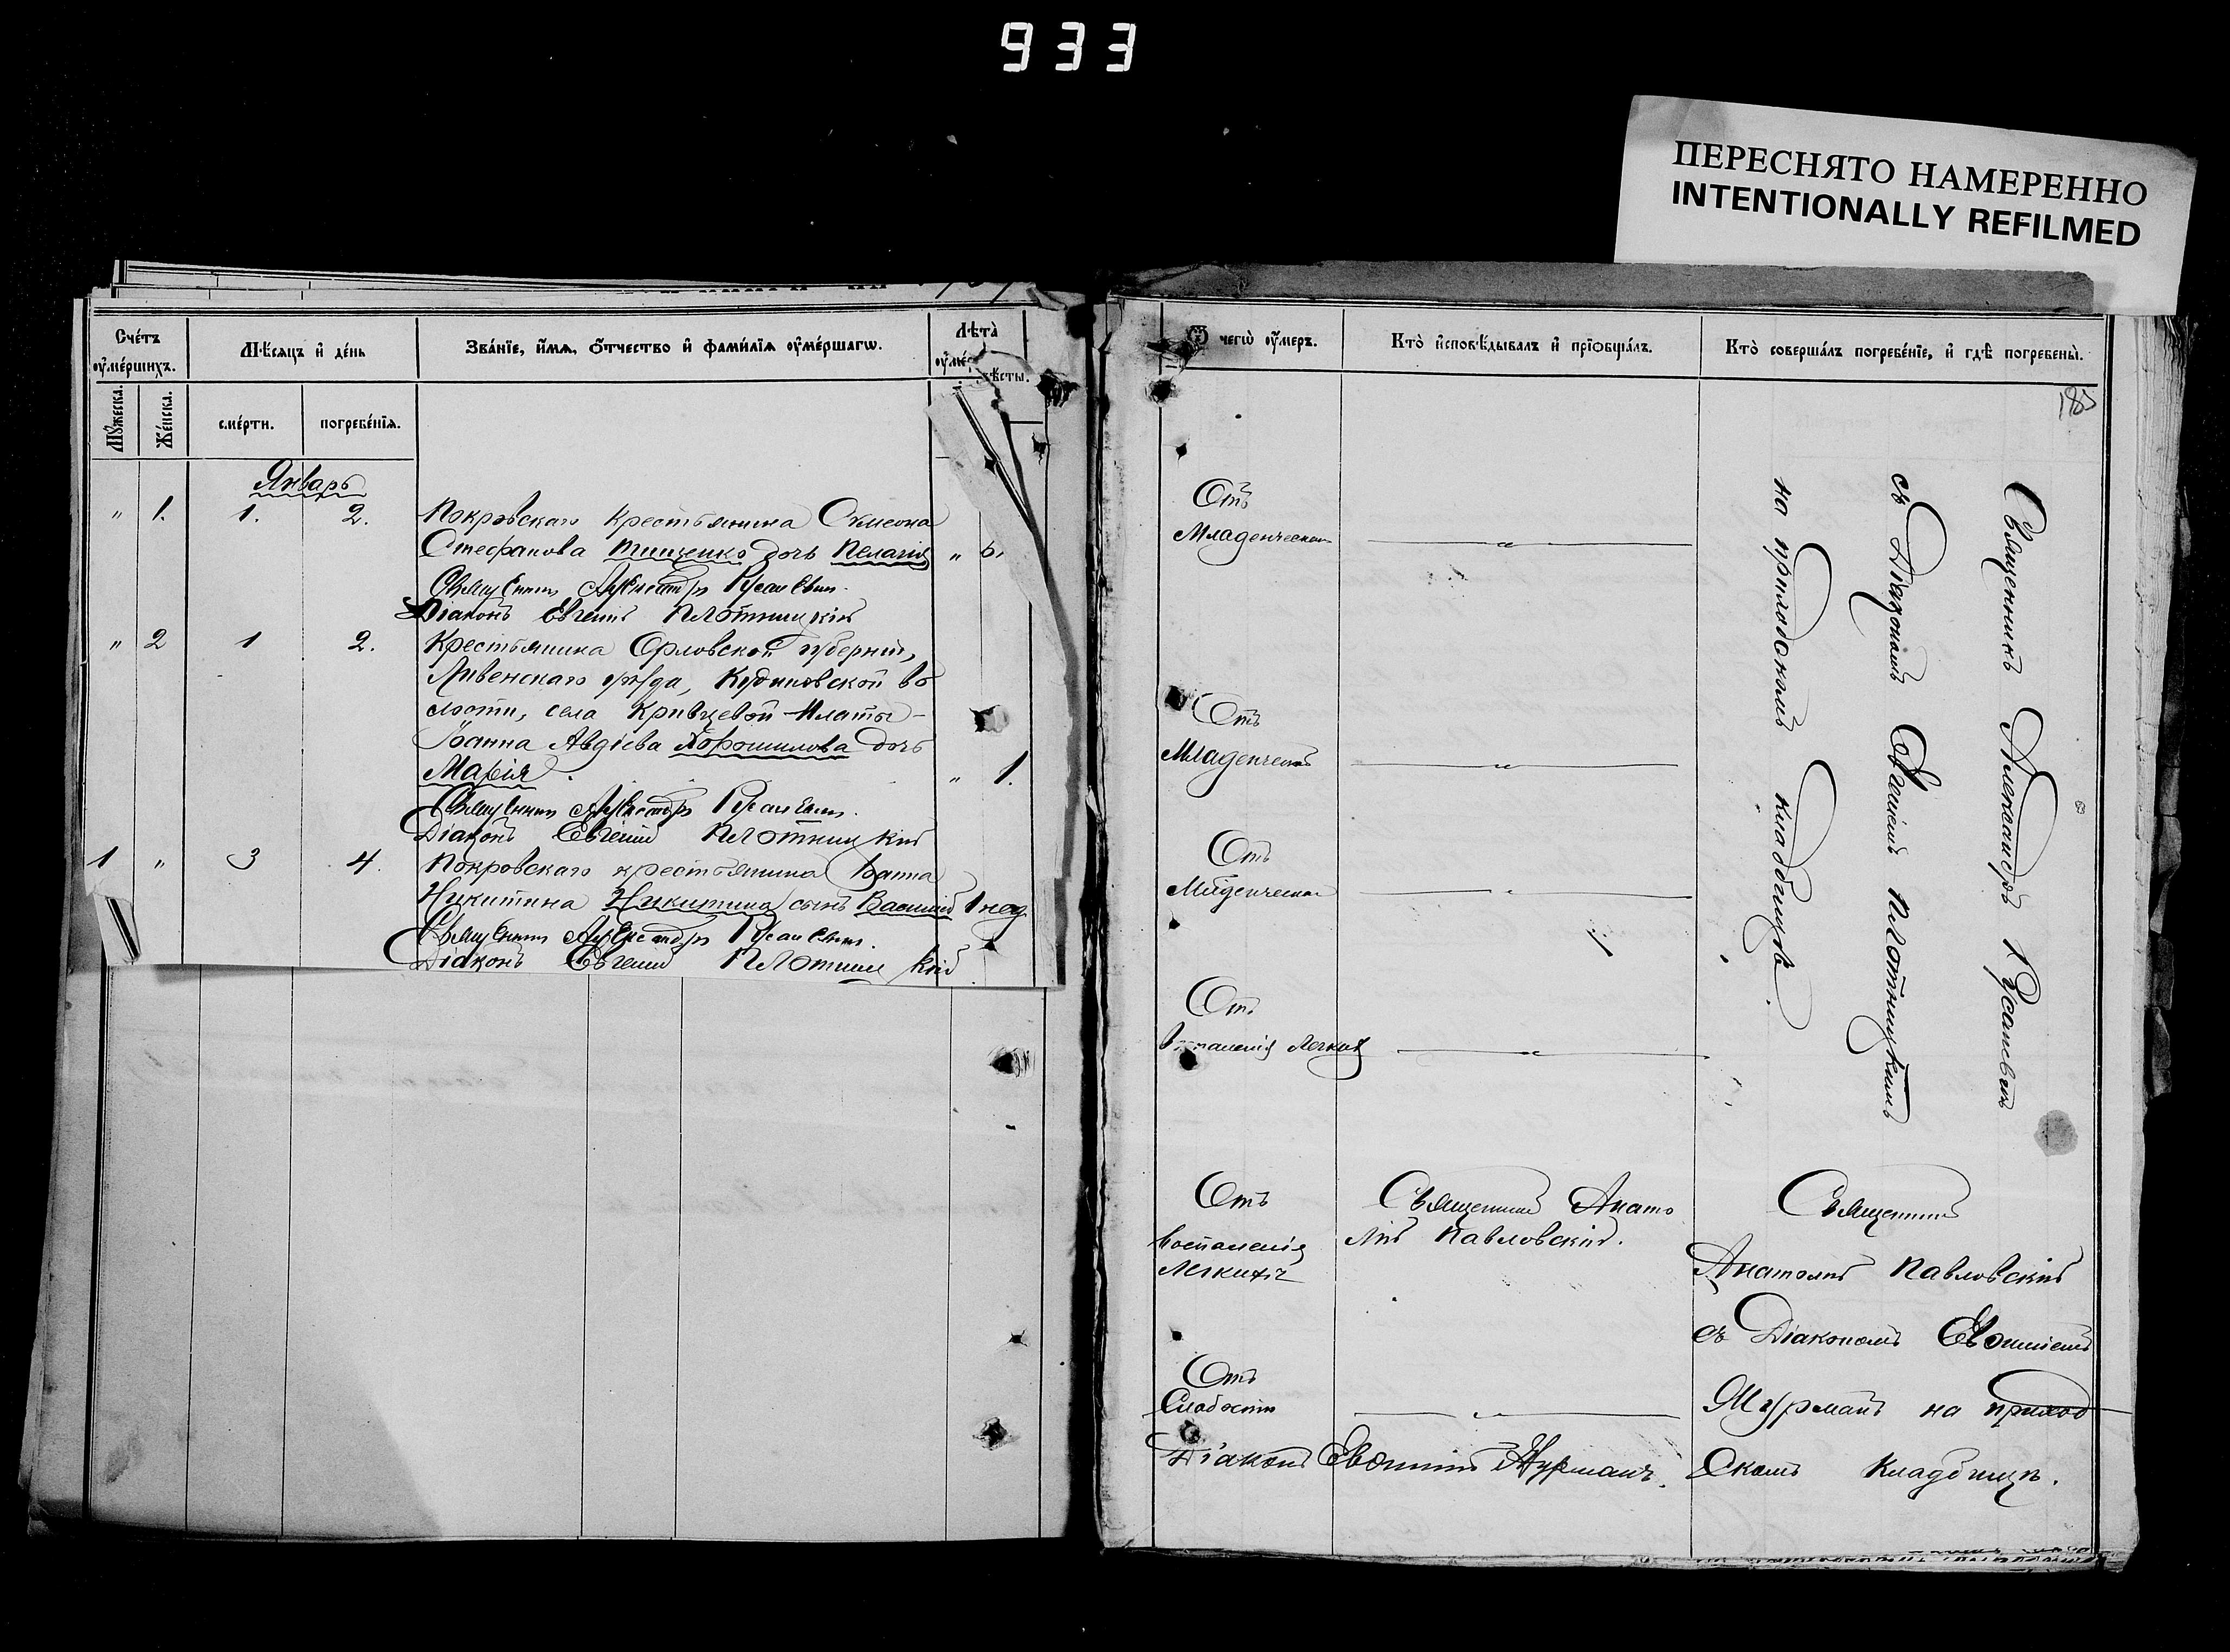 933
ПЕРЕСНЯТО НАМЕРЕННО
INTENTIONALLY REFILMED
Счетъ оумершихъ.
Мѣсяцъ и день
Званіе, имя, отчество и фамилія оумершагѡ.
Лѣта
Мужеска.
Женска.
смерти.
погребенія.
Январь
" 1. 1. 2. Покровскаго крестьянина Симеона
Стефанова Тищенко дочь Пелагія " 6.
Священникъ Александръ Русаневичъ.
Діаконъ Евгеній Плотницкій
" 2 1 2. Крестьянина Орловской губерніи,
Ливенскаго уѣзда, Кудиновской во
лости, села Кривцевой Плоты
Іоанна Авдіева Хорошилова дочь
Марія " 1.
Священникъ Александръ Русаневичъ.
Діаконъ Евгеній Плотницкій
1 " 3 4. Покровскаго крестьянина Іоанна
Никитина Никитина сынъ Василій 1 нед.
Священникъ Александръ Русаневичъ.
Діаконъ Евгеній Плотницкій
Ѿ чегѡ оумеръ.
Кто исповѣдывалъ и пріобщалъ.
Кто совершалъ погребеніе, и гдѣ погребены.
185
Отъ
Младенческой
Отъ
Младенческой
Отъ
Младенческой
Отъ
Воспаленія легкихъ
Священникъ Александръ Русаневичъ
съ Діакономъ Евгеніемъ Плотницкимъ
на приходскомъ кладбищѣ.
Отъ
воспаленія
легкихъ
Священникъ Анато
лій Павловскій.
Священникъ
Анатолій Павловскій
съ Діакономъ Евѳиміемъ
Мурманъ на приход
скомъ кладбищѣ.
Отъ
Слабости
Діаконъ Евѳимій Мурманъ.